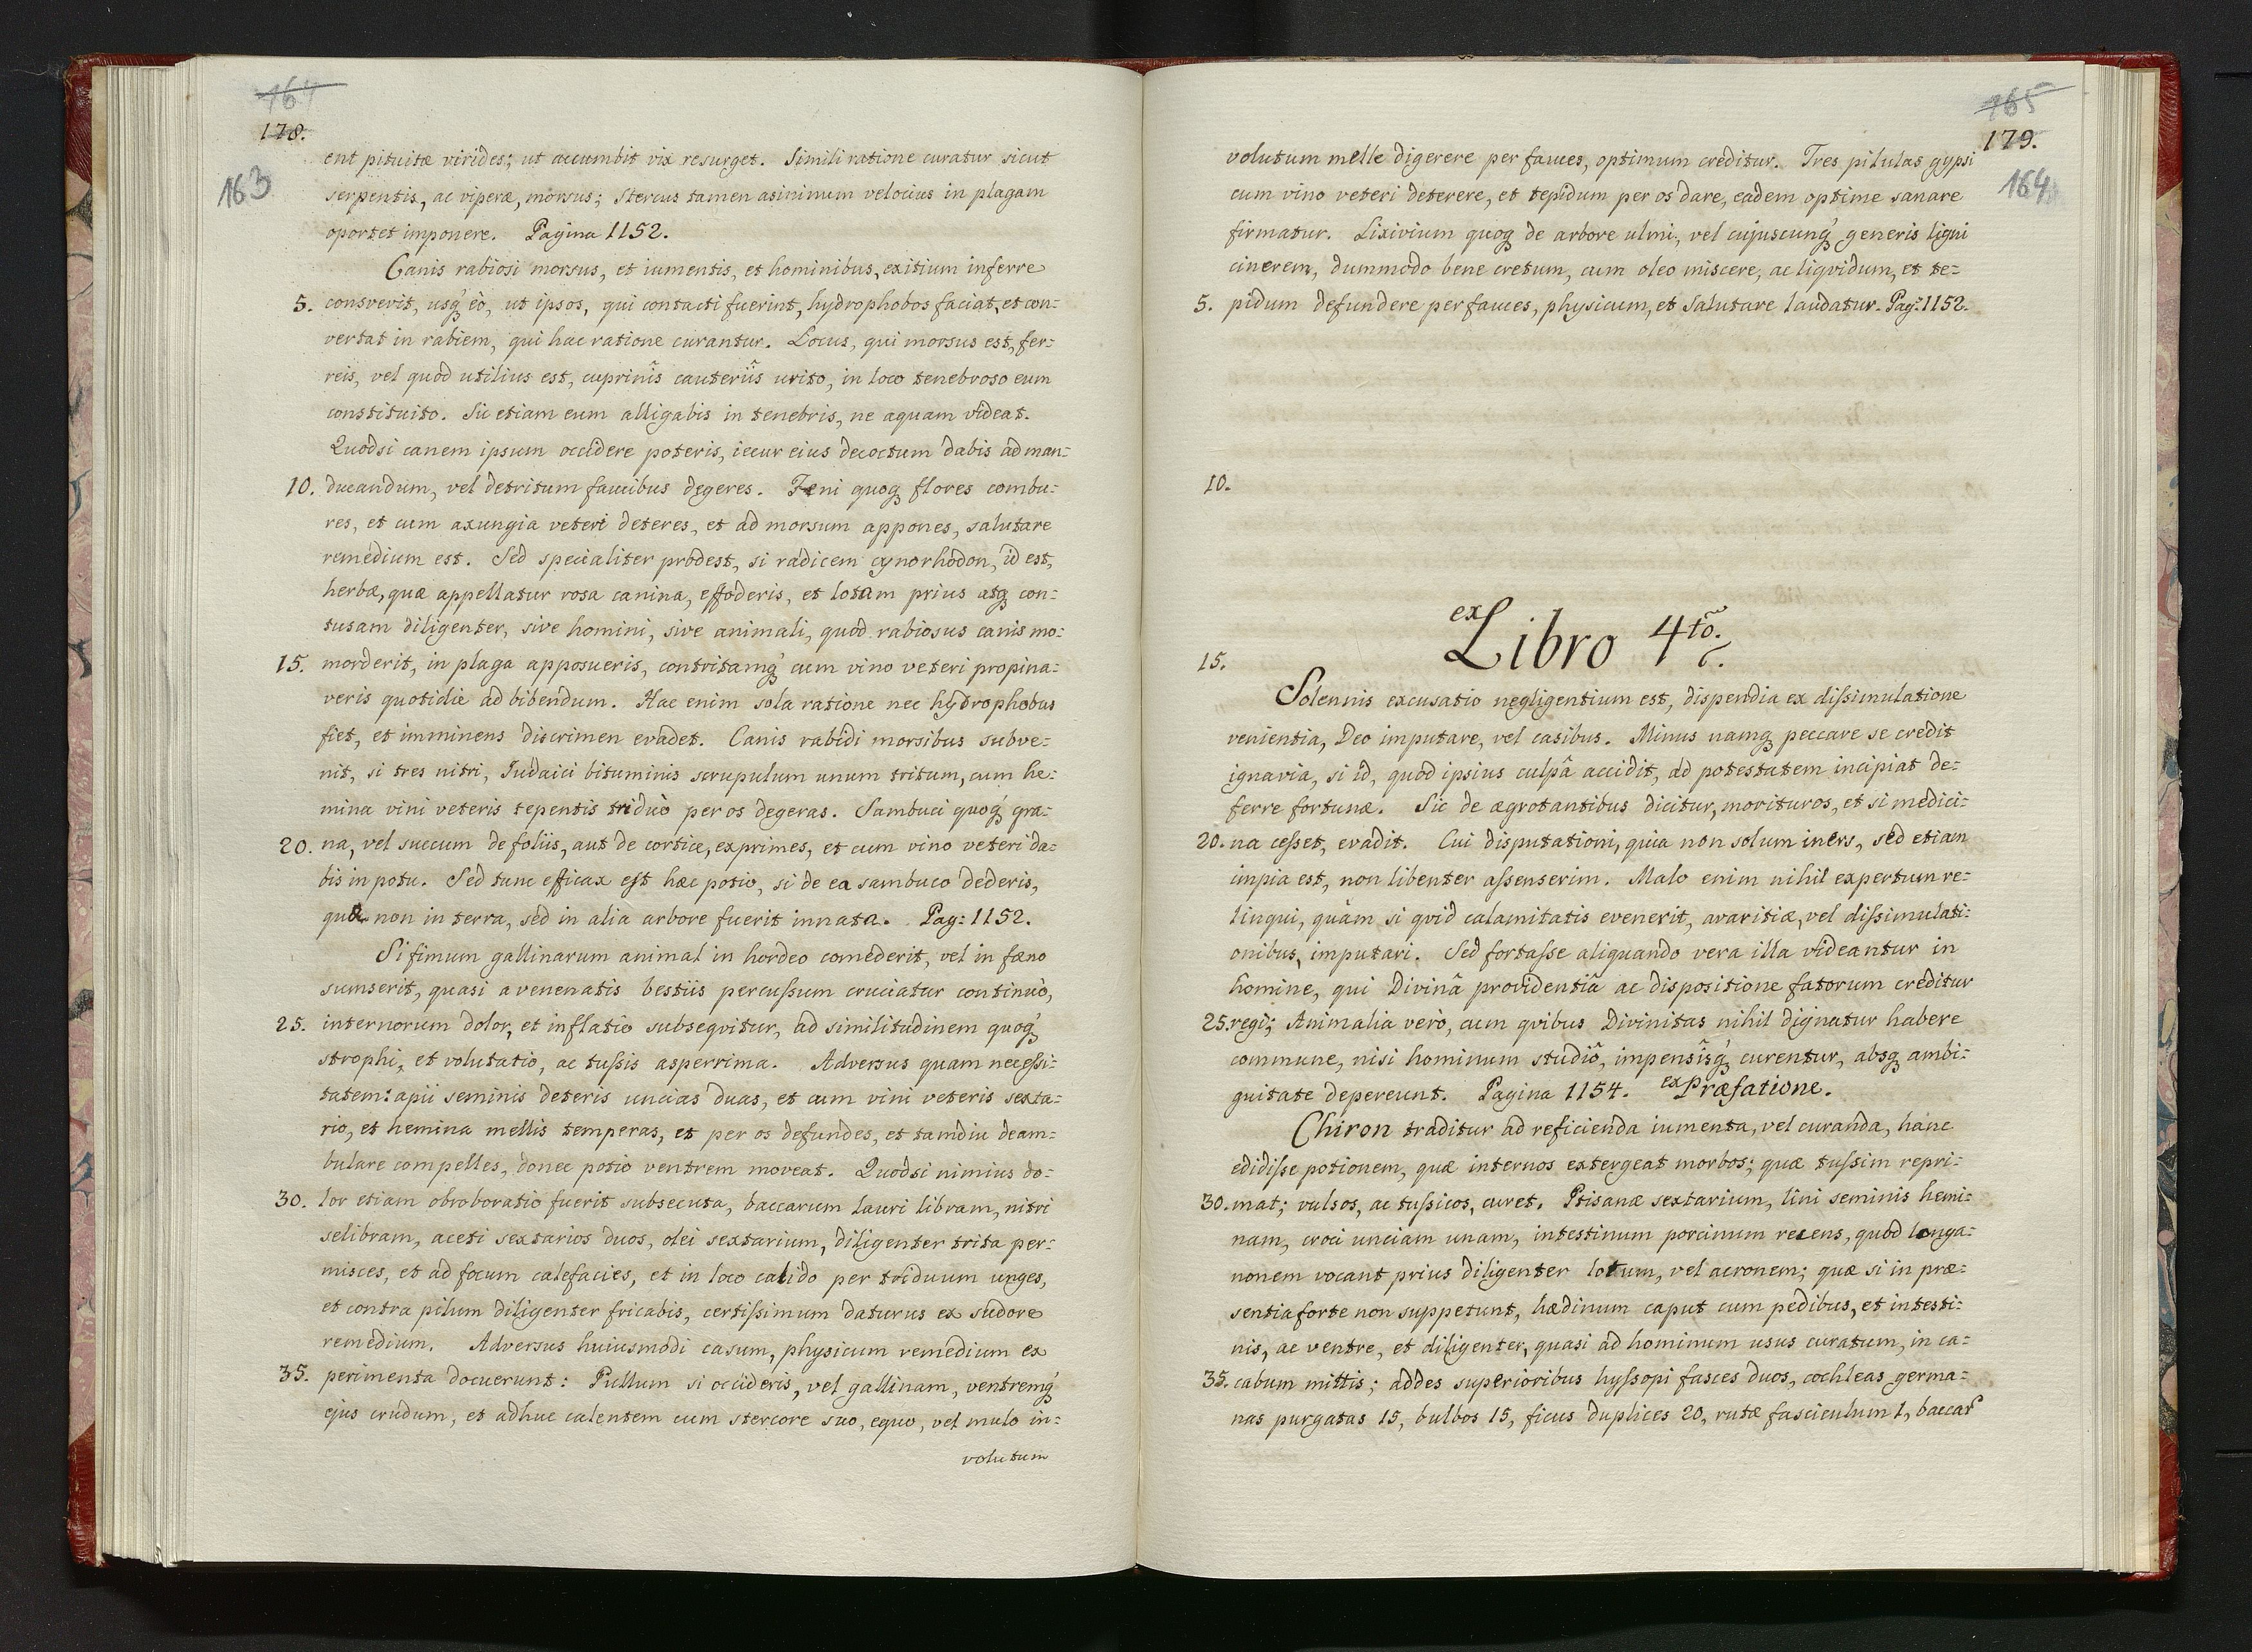 164
178.
163
ent pituitæ virides; ut accumbit vix resurget. Simili ratione curatur sicut
serpentis, ac viperæ, morsus; stercus tamen asininum velocius in plagam
oportet imponere. Pagina 1152.
Canis rabiosi morsus, et iumentis, et hominibus, exitium inferre
5. consverit, usq́ eò, ut ipsos, qui contacti fuerint, hydrophobos faciat, et con:
vertat in rabiem, qui hac ratione curantur. Locus, qui morsus est, fer:
reis, vel quod utilius est, cuprinîs cauteriîs urito, in loco tenebroso eum
constituito. Sic etiam eum alligabis in tenebris, ne aquam videat.
Quodsi canem ipsum occidere poteris, iecur eius decoctum dabis ad man:
10. ducandum, vel detritum faucibus degeres. Feni quoq́ flores combu:
res, et cum axungia veteri deteres, et ad morsum appones, salutare
remedium est. Sed specialiter prodest, si radicem cynorhodon, id est,
herbæ, quæ appellatur rosa canina, effoderis, et lotam prius atq́ con:
tusam diligenter, sive homini, sive animali, quod rabiosus canis mo:
15. morderit, in plaga apposueris, contritamq́ cum vino veteri propina:
veris quotidie ad bibendum. Hac enim sola ratione nec hydrophobus
fiet, et imminens discrimen evadet. Canis rabidi morsibus subve:
nit, si tres nitri, Judaici bituminis scrupulum unum tritum, cum he:
mina vini veteris tepentis triduò per os degeras. Sambuci quoq́ gra:
20. na, vel succum de foliis, aut de cortice, exprimes, et cum vino veteri da:
bis in potu. Sed tunc efficax est hæc potio, si de ea sambuco dederis,
quæ non in terra, sed in alia arbore fuerit innata. Pag: 1152.
Si fimum gallinarum animal in hordeo comederit, vel in fæno
sumserit, quasi a venenatis bestiis percussum cruciatur continuò,
25. internorum dolor, et inflatio subseqvitur, ad similitudinem quoq́
strophi, et volutatio, ac tussis asperrima. Adversus quam necessi:
tatem: apii seminis deteris uncias duas, et cum vini veteris sexta:
rio, et hemina mellis temperas, et per os defundes, et tamdiu deam:
bulare compelles, donec potio ventrem moveat. Quodsi nimius do:
30. lor etiam obroboratio fuerit subsecuta, baccarum lauri libram, nitri
selibram, aceti sextarios duos, olei sextarium, diligenter trita per:
misces, et ad focum calefacies, et in loco calido per triduum unges,
et contra pilum diligenter fricabis, certissimum daturus ex sudore
remedium. Adversus huiusmodi casum, physicum remedium ex
35. perimenta docuerunt: Pullum si occideris, vel gallinam, ventremq́
ejus crudum, et adhuc calentem cum stercore suo, equo, vel mulo in:
volutum
165
179.
164
volutum melle digerere per fauces, optimum creditur. Tres pilulas gypsi
cum vino veteri deterere, et tepidum per os dare, eadem optime sanare
firmatur. Lixivium quoq́ de arbore ulmi, vel cujuscunq́ generis ligni
cinerem, dummodo bene cretum, cum oleo miscere, ac liqvidum, et te:
5. pidum defundere per fauces, physicum, et salutare laudatur. Pag: 1152.
10.
ex Libro 4to.
15.
Solennis excusatio negligentium est, dispendia ex dissimulatione
venientia, Deo imputare, vel casibus. Minus namq́ peccare se credit
ignavia, si id, quod ipsius culpâ accidit, ad potestatem incipiat de:
ferre fortunæ. Sic de ægrotantibus dicitur, morituros, et si medici:
20. na cesset, evadit. Cui disputationi, quia non solum iners, sed etiam
impia est, non libenter assenserim. Malo enim nihil expertum re:
linqui, quàm si qvid calamitatis evenerit, avaritiæ, vel dissimulati:
onibus, imputari. Sed fortasse aliquando vera illa videantur in
homine, qui Divinâ providentiâ ac dispositione fatorum creditur
25. regi; Animalia verò, cum qvibus Divinitas nihil dignatur habere
commune, nisi hominum studiô, impensîsq́ curentur, absq́ ambi:
guitate depereunt. Pagina 1154. ex Præfatione.
Chiron traditur ad reficienda iumenta, vel curanda, hanc
edidisse potionem, quæ internos extergeat morbos; quæ tussim repri:
30. mat; vulsos, ac tussicos, curet. Ptisanæ sextarium, lini seminis hemi:
nam, croci unciam unam, intestinum porcinum recens, quod longa:
nonem vocant prius diligenter lotum, vel acronem; quæ si in præ:
sentia forte non suppetunt, hædinum caput cum pedibus, et intesti:
nis, ac ventre, et diligenter, quasi ad hominum usus curatum, in ca:
35. cabum mittis; addes superioribus hyssopi fasces duos, cochleas germa:
nas purgatas 15, bulbos 15, ficus duplices 20, rutæ fasciculum 1, baccar